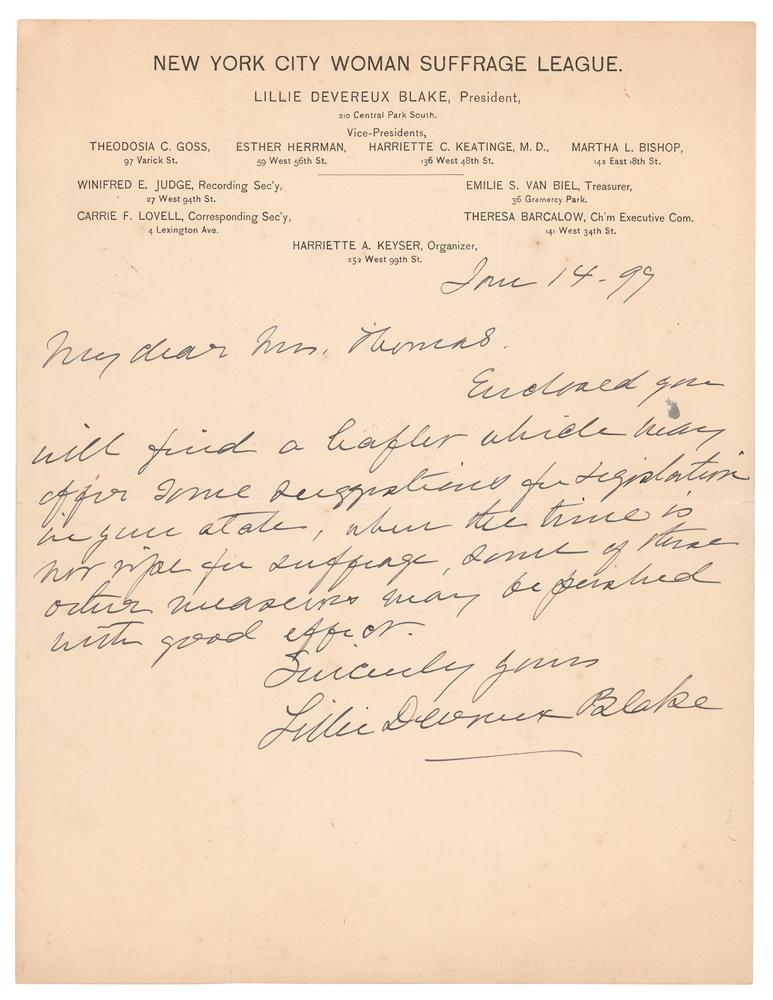 NEW YORK CITY WOMAN SUFFRAGE LEAGUE.
LILLIE DEVEREUX BLAKE, President,
210 Central Park South.
Vice-Presidents,
THEODOSIA C. GOSS, ESTHER HERRMAN, HARRIETTE C. KEATINGE, M. D., MARTHA L. BISHOP,
97 Varick St. 59 West 56th St. 136 West 48th St. 142 East 18th St.
WINIFRED E. JUDGE, Recording Sec'y, EMILIE S. VAN BIEL, Treasurer,
27 West 94th St. 36 Gramercy Park.
CARRIE F. LOVELL, Corresponding Sec'y, THERESA BARCALOW, Ch'm Executive Com.
4 Lexington Ave. 141 West 34th St.
HARRIETTE A. KEYSER, Organizer,
252 West 99th St.
Jan 14-99
My dear Mrs. Thomas.
Enclosed you
will find a leaflet which may
offer some suggestions for legislation
in your state, when the time is
not ripe for suffrage, some of these
other measures may be pushed
with good effect.
Sincerely yours
Lillie Devereux Blake